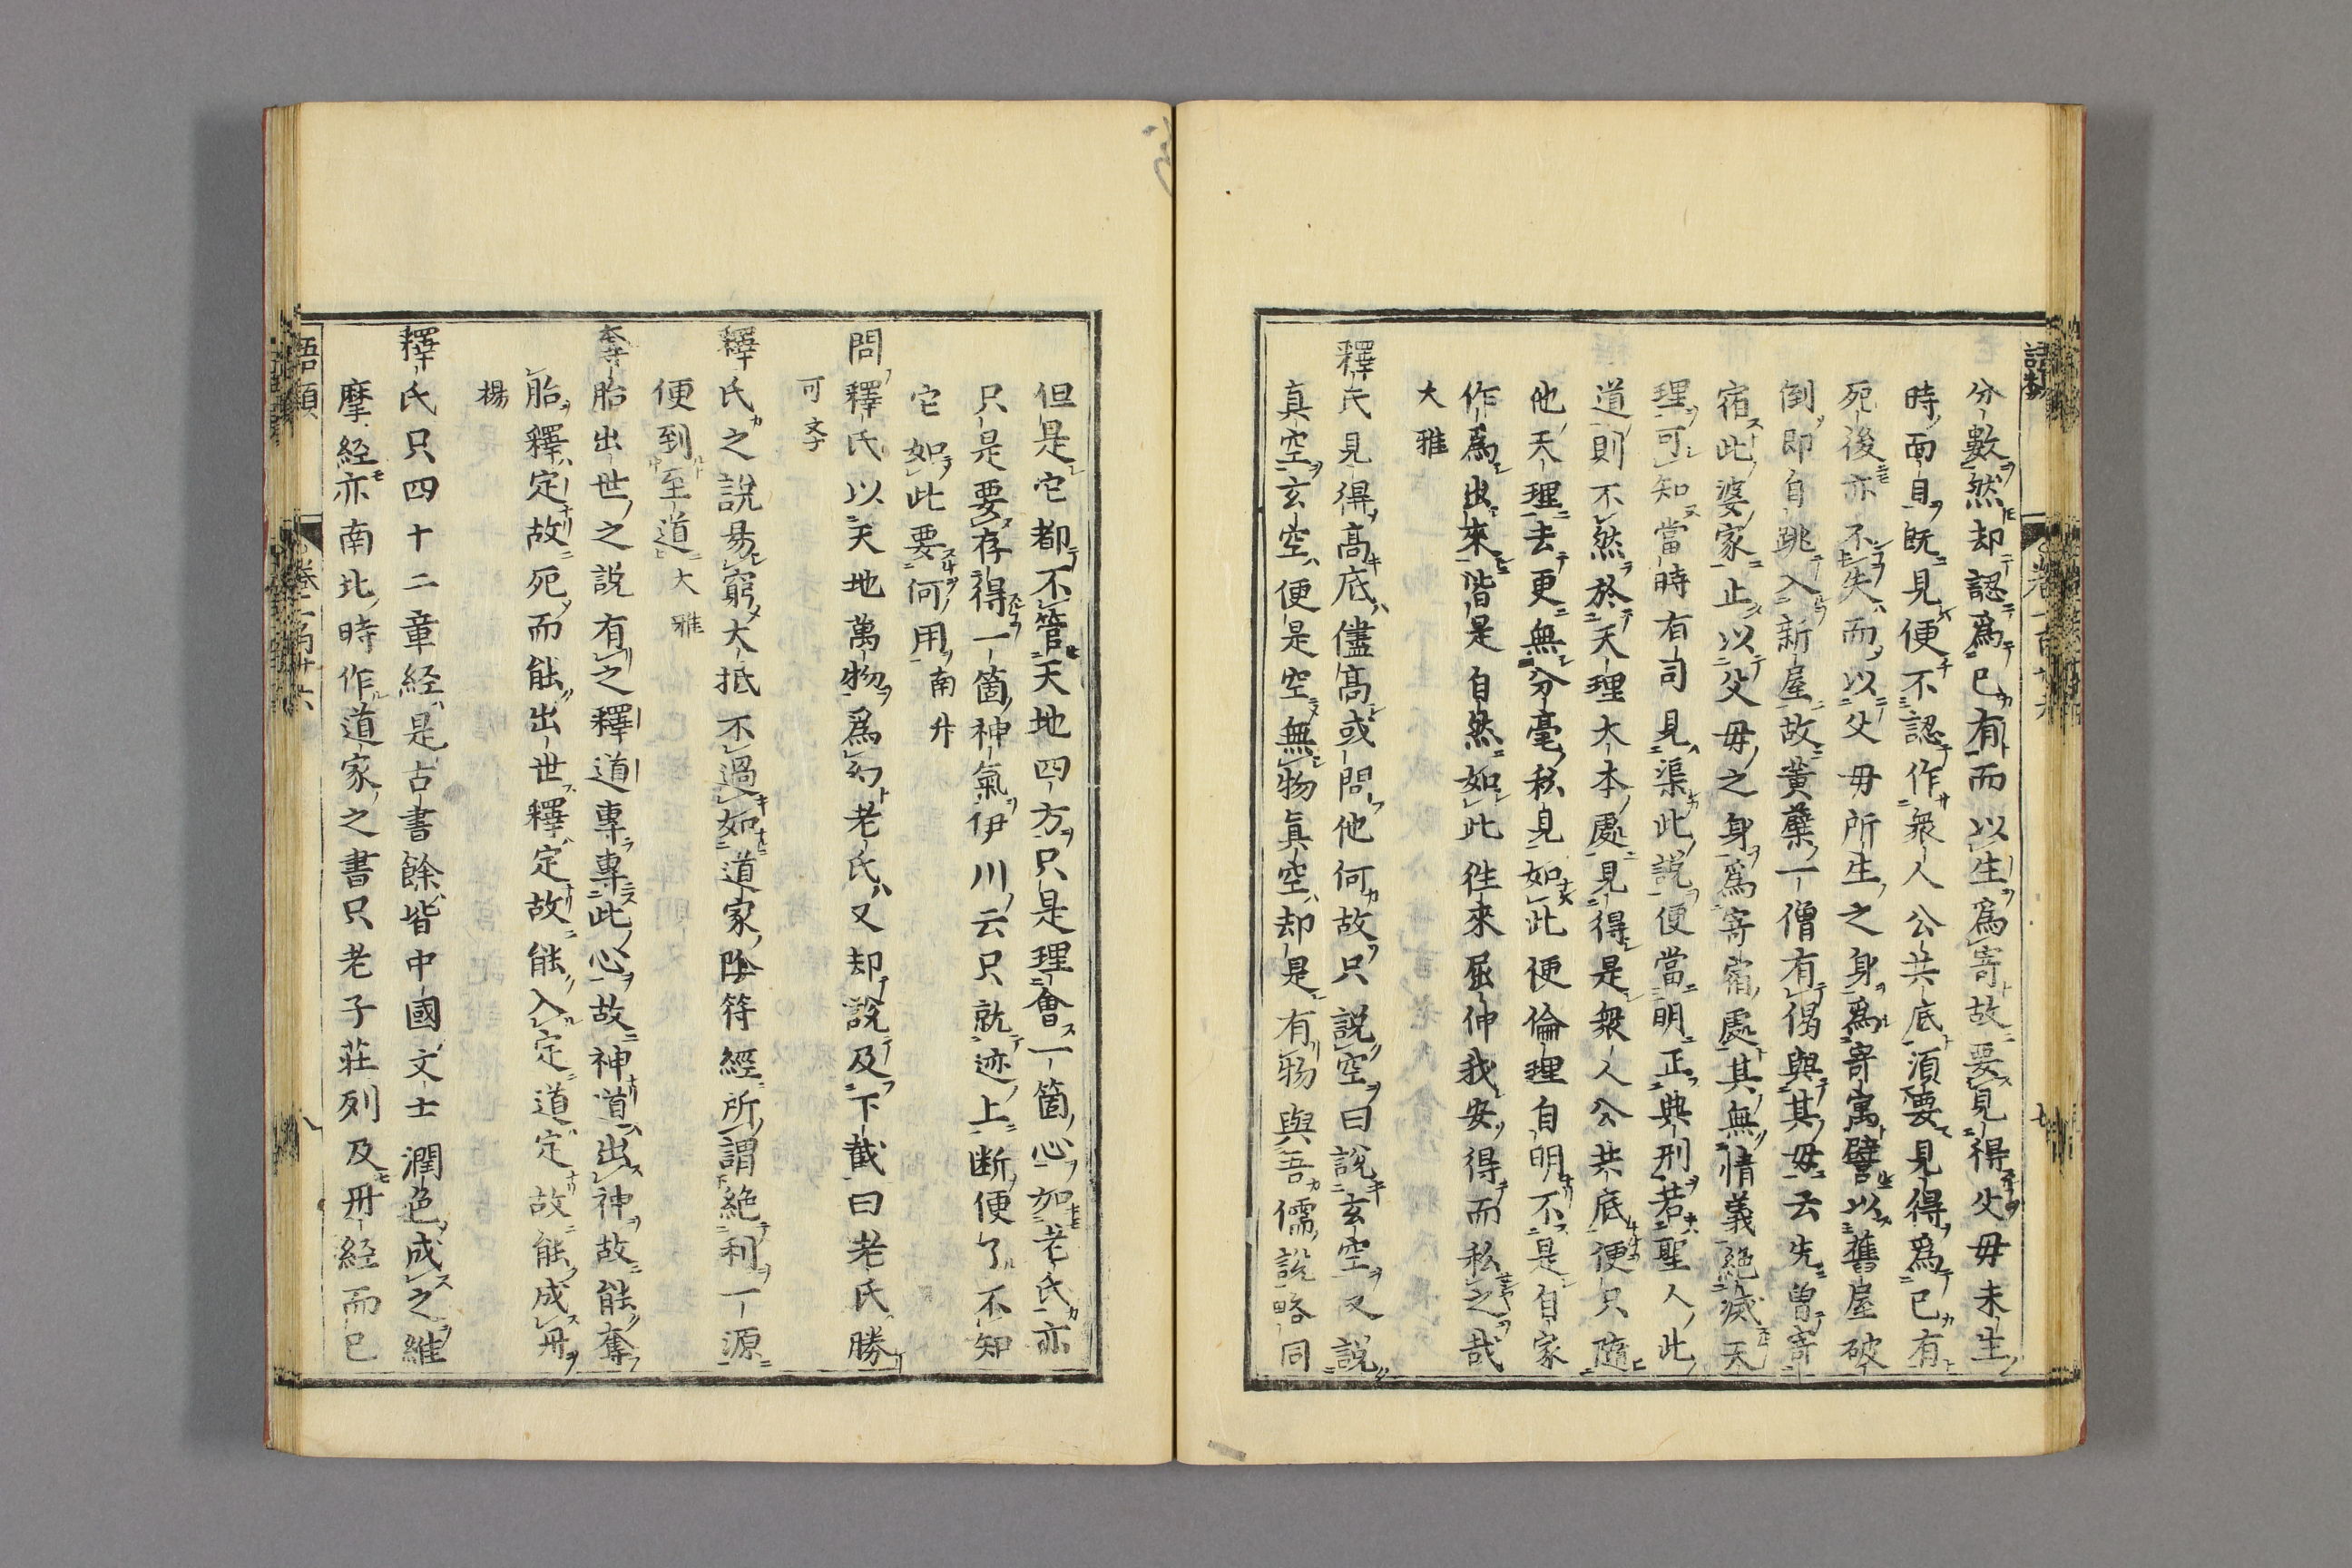 分數然却認爲已有而以生爲寄故要見得父母未生
時面目既見便不認作衆人公共底須要見得爲已有
死後亦不失而以父母所生之身爲寄寓譬以舊屋破
倒即自跳入新屋故黄蘗一僧有偈與其母云先曾寄
宿此婆家止以父母之身爲寄宿處其無情義絶滅天
理可知當時有司見渠此說便當明正典刑若聖人此
道則不然於天理大本處見得是衆人公共底便只隨
他天理去更無分毫私見如此便倫理自明不是自家
作爲出來皆是自然如此徃來屈伸我安得而私之哉
大雅
釋氏見得高底儘高或問他何故只說空曰說玄空又說
真空玄空便是空無物真空却是有物與吾儒說略同
但是它都不管天地四方只是理會一箇心如老氏亦
只是要存得一箇神氣伊川云只就迹上断便了不知
它如此要何用南升
問釋氏以天地萬物爲幻老氏又却說及下截曰老氏勝
可孝
釋氏之說易窮大抵不過如道家陰符經所謂絶利一源
便到至道大雅
奪胎出世之說有之釋道專專此心故神道出神故能奪
胎釋定故死而能出世釋定故能入定道定故能成丹
楊
釋氏只四十二章経是古書餘皆中國文士潤色成之維
摩経亦南北時作道家之書只老子莊列及丹経而已
語類
卷一百廿六
八